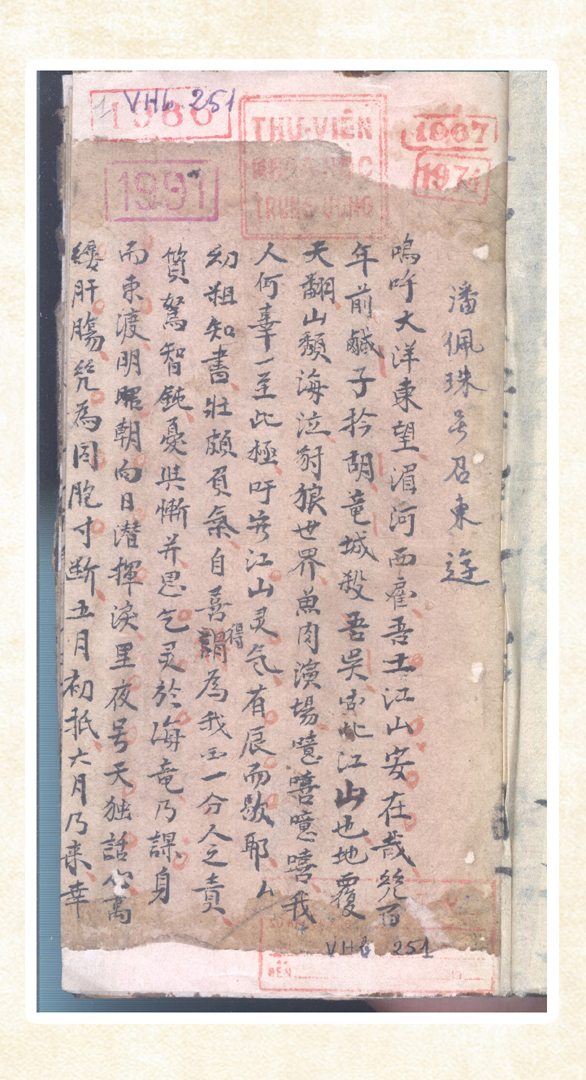 VHb 251
1986
THƯ·VIỆN
KHOA HỌC
TRUNG ƯƠNG
1967
1971
1991
潘佩珠号召東遊
嗚呼大洋東望湄河西雇吾土江山安在哉幾百
年前鹹子矜胡竜城殺吾吳此江山也地覆
天翻山頹海泣豺狼世界魚肉演場噫嘻噫嘻我
人何辜一至此極吁嗟江山灵气有辰而歇耶厶
幼粗知書壯頗負氣自喜謂得為我玉一分人之責
質駑智鈍憂與慚并思乞灵於海竜乃課身
而東渡明朝向日潜揮淚里夜号天独話心高
縷肝腸幾為同胞寸断五月初抵六月乃来幸
VHb 251